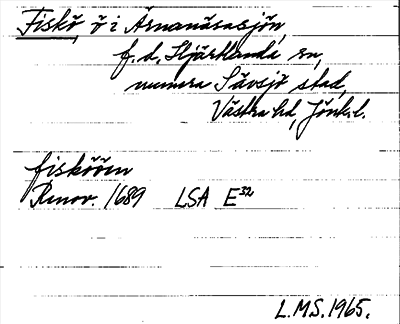 Fiskö, ö i Årnanäsasjön,
f.d. Hjärtlanda sn,
numera Sävsjö stad,
Västra hd, Jönk. l.
fiskööen
Renov. 1689 LSA E³²
L.M.S. 1965.